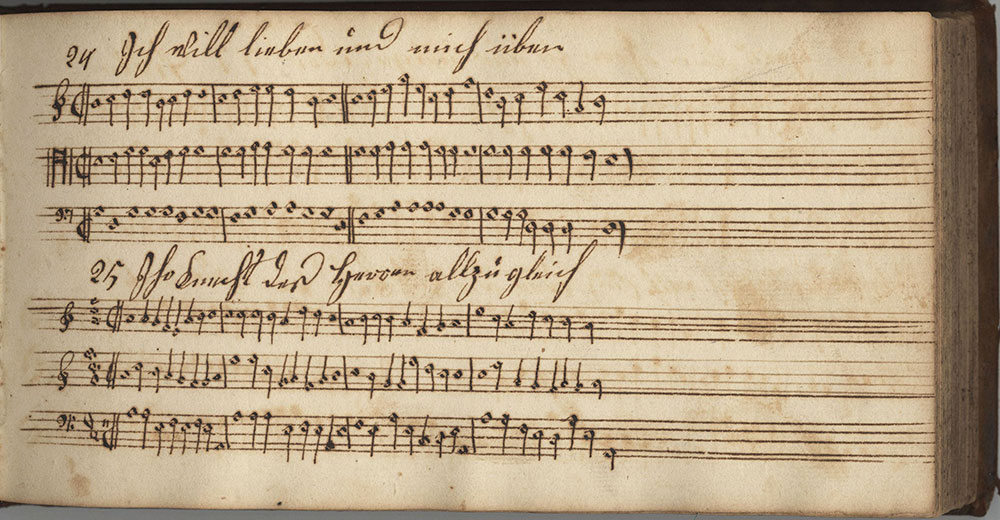 24 Ich will lieben und mich üben
25 Ihr Knecht des Herren allzugleich